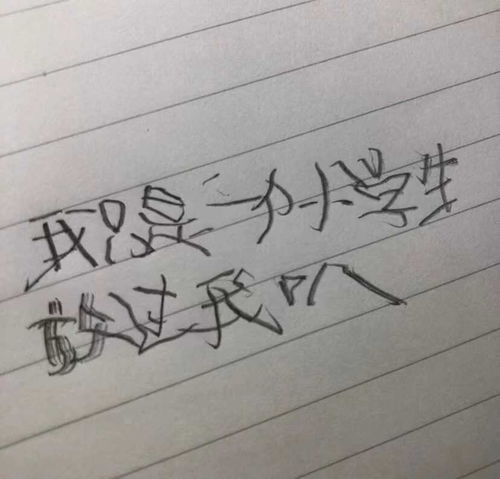 我只是一个小学生
放过我叭